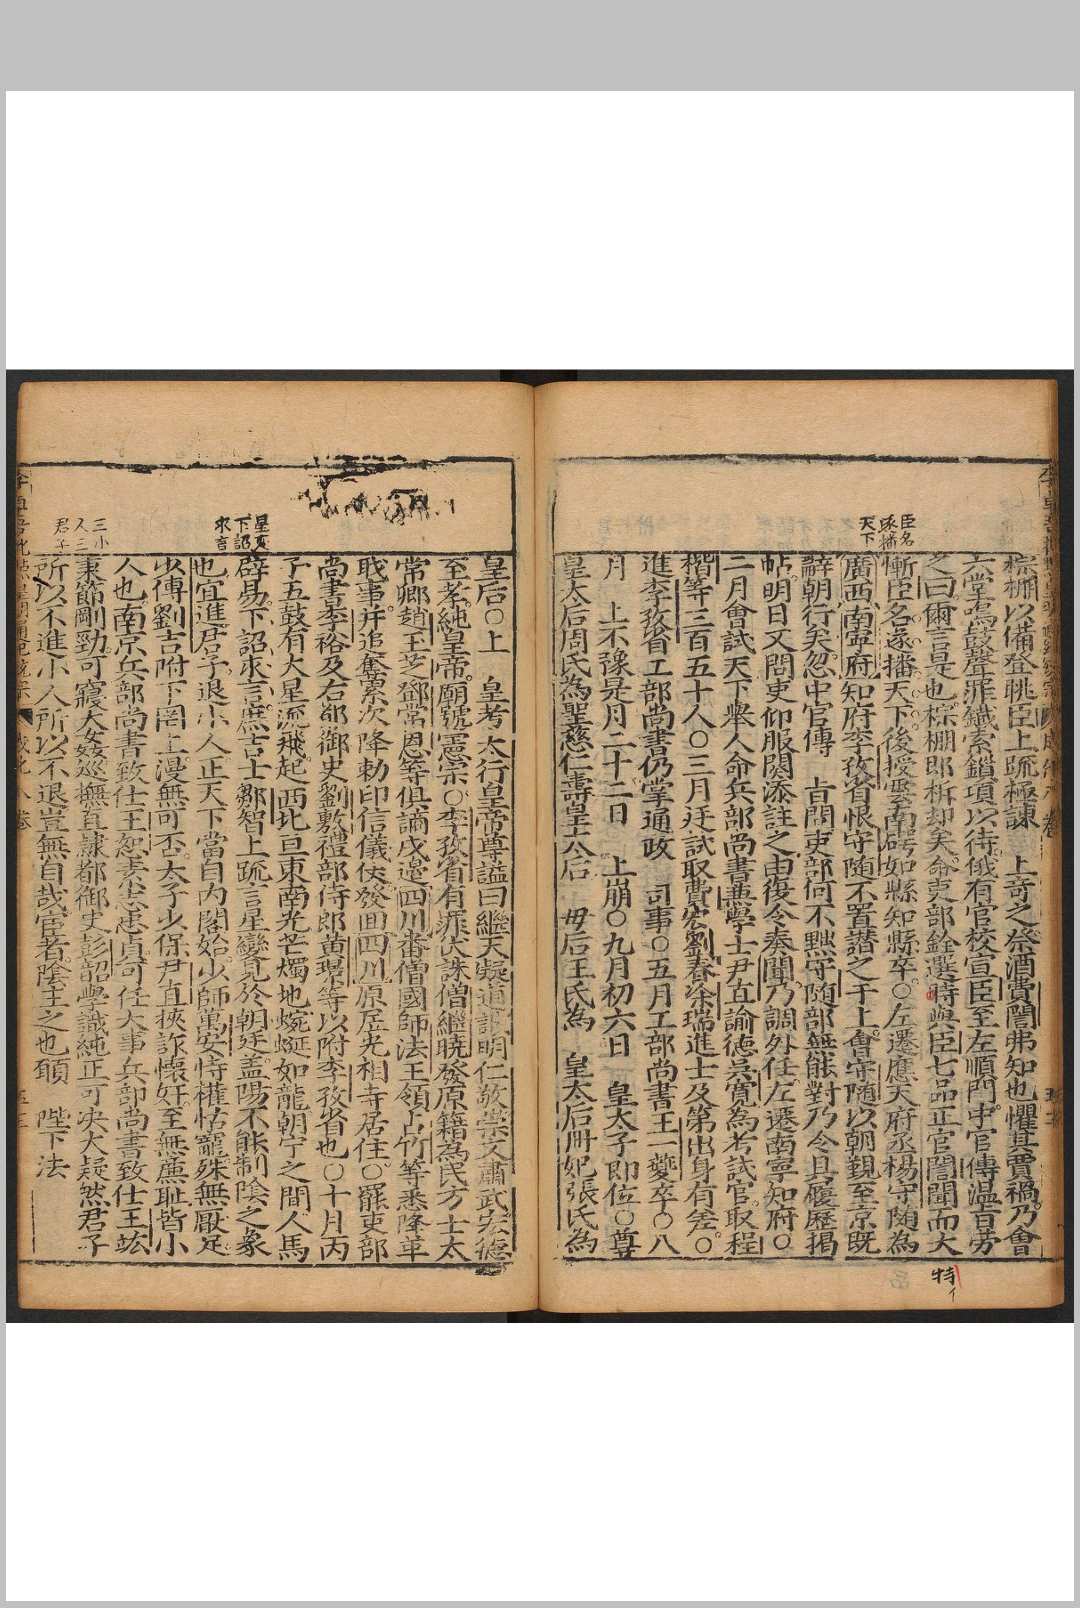 臣名
琢播
天下
棕棚以備登眺臣上疏極諫　上奇之祭酒費誾弗知也懼其賈禍乃會
六堂鳴鼓聲罪鐵索鎖項以待俄有官校宣臣至左順門中官傳温旨勞
之曰爾言是也棕棚即柝却矣命吏部銓選時與臣七品正官誾聞而大
慚臣名遂播天下後授雲南碍如縣知縣卒○左遷應天府丞楊守隨為
廣西南寧府知府李孜省恨守随不置譛之于上會守隨以朝覲至京既
辭朝行矣忽中官傳　旨問吏部何不黜守随部無能對乃令具履歷揭
帖明日又問吏仰服闋添註之由復令奏聞乃調外任左遷南寧知府○
二月會試天下舉人命兵部尚書兼學士尹直諭德吳寬為考試官取程
楷等三百五十人○三月廷試取費宏劉春涂瑞進士及第出身有差○
進李孜省工部尚書仍掌通政　司事○五月工部尚書王一夔卒○八
月　上不豫是月二十二日　上崩○九月初六日　皇太子即位○尊
皇太后周氏為聖慈仁壽皇太后　母后王氏為　皇太后册妃張氏為
皇后○上　皇考大行皇帝尊謚曰繼天凝道誠明仁敬崇文肅武宏德
至孝純皇帝廟號憲宗○李孜省有罪伏誅僧繼曉發原籍為民方士太
常卿趙王芝鄧常恩等俱謫戍邊四川番僧國師法王領占竹等悉降革
戝事并追奪累次降勅印信儀伏發回四川原居光相寺居住○罷吏部
尚書李裕及右都御史劉敷禮部侍郎黄景等以附李孜省也○十月丙
子五鼓有大星流飛起西北亘東南光芒燭地蜿蜒如龍朝宁之間人馬
星變
下詔
求言
辟易下詔求言庶吉士鄒智上疏言星變見於朝廷蓋陽不能制陰之象
也宜進君子退小人正天下當自内閣始少師萬安恃權怙寵殊無厭足
少傅劉吉附下罔上漫無可否太子少保尹直挾詐懷奸至無廉耻皆小
人也南京兵部尚書致仕王恕素志忠貞可任大事兵部尚書致仕王竑
三小
人三
君子
秉節剛勁可寢大姦巡撫直隸都御史彭韶學識純正可决大疑然君子
所以不進小人所以不退豈無自哉宦者陰主之也願　陛下法
特